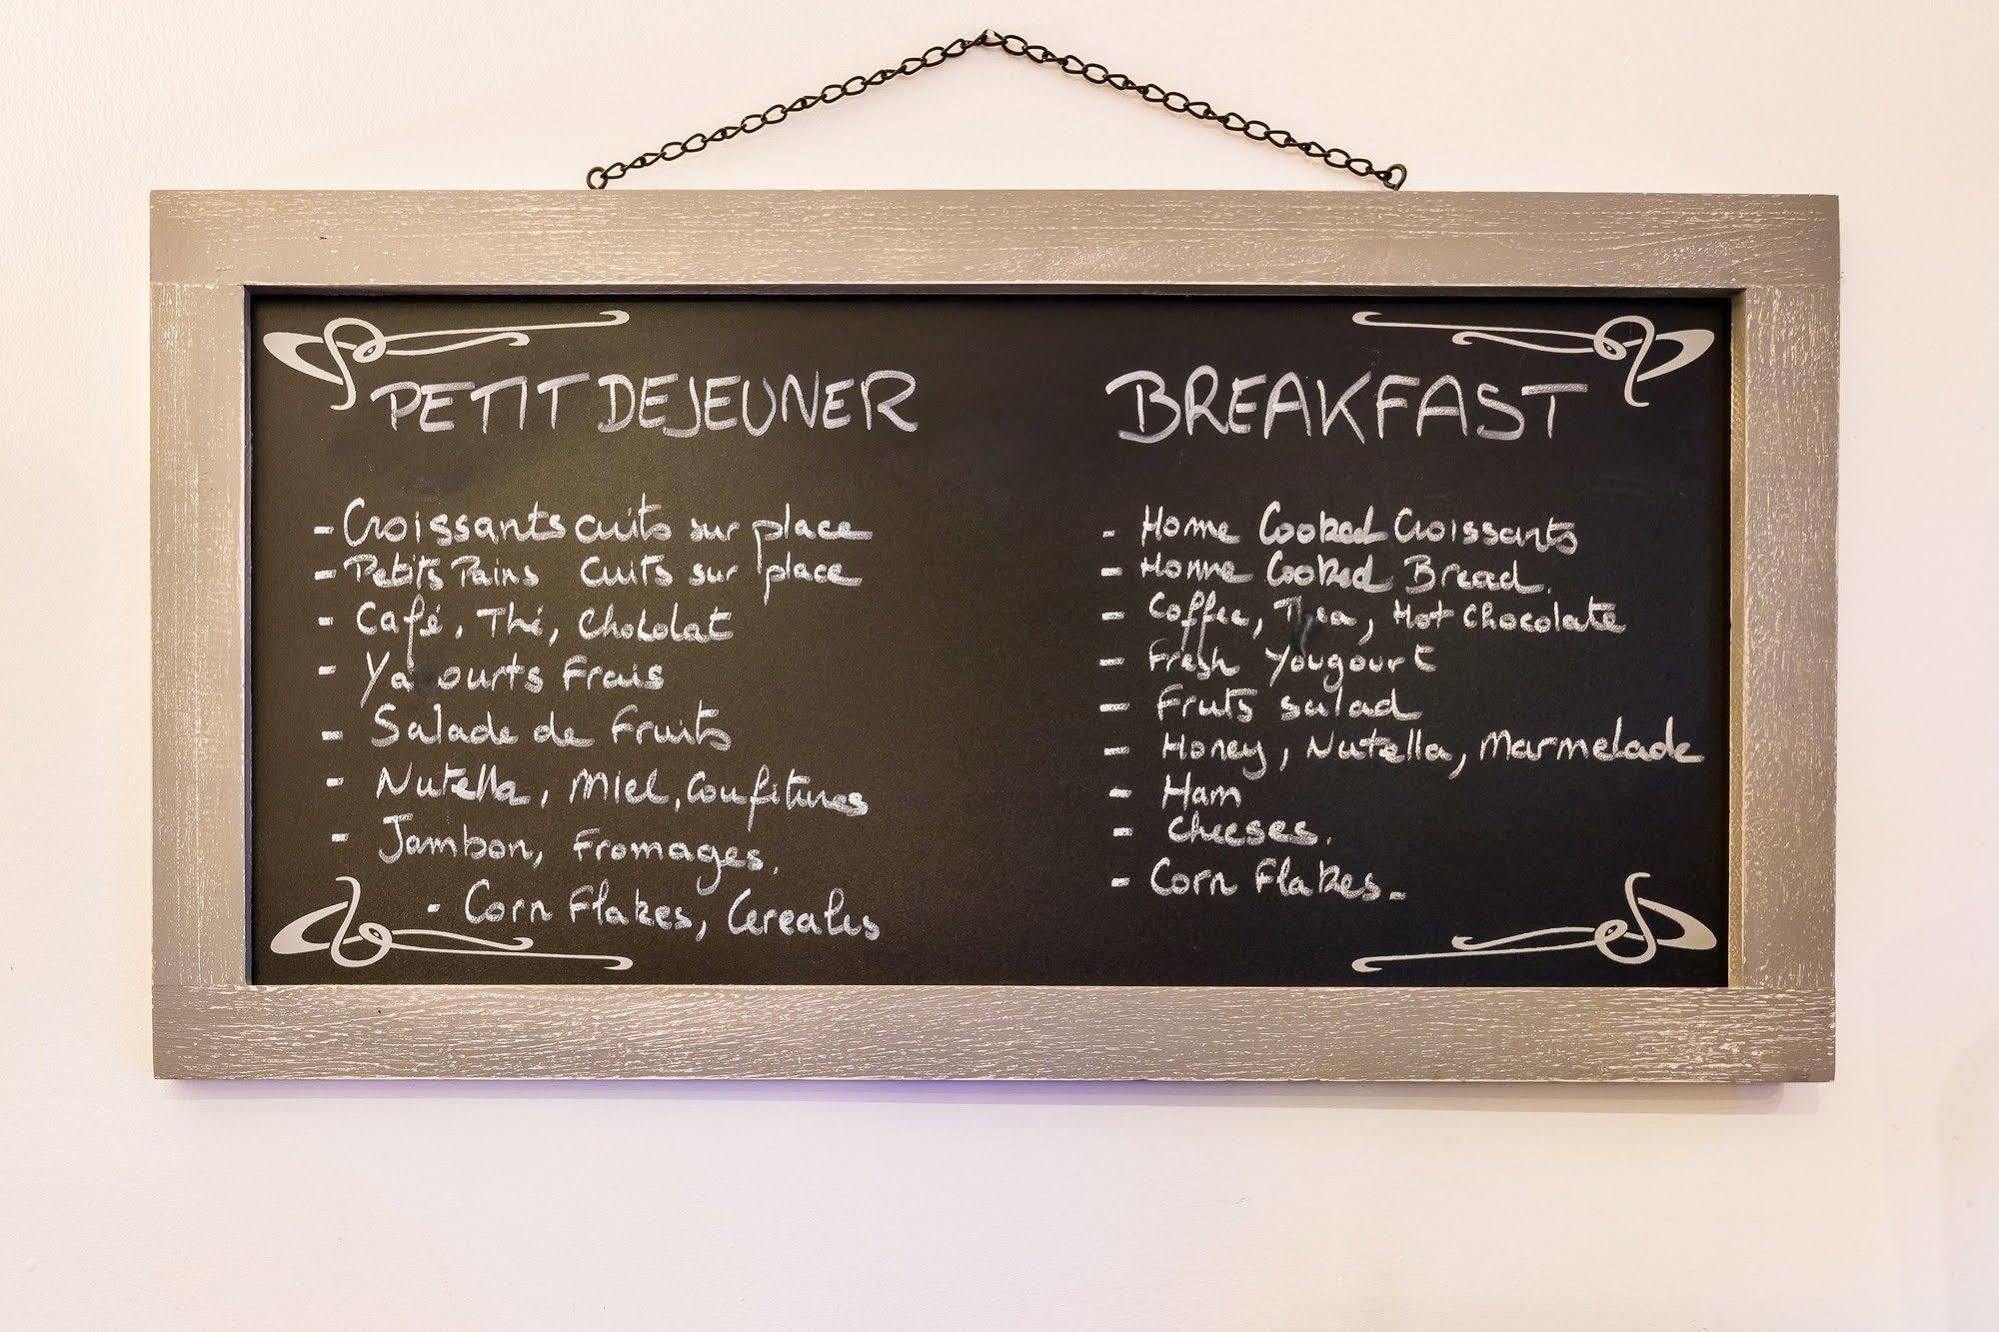 PETIT DEJEUNER
- Croissants cuits sur place
- Petits Pains cuits sur place
- Café, Thé, Chocolat
- Ya ourts Frais
- Salade de Fruits
- Nutella, Miel, Confitures
- Jambon, Fromages.
- Corn Flakes, Cereales
BREAKFAST
- Home Cooked Croissants
- Home Cooked Bread.
- Coffee, Thea, Hot Chocolate
- Fresh Yougourt
- Fruts salad
- Honey, Nutella, Marmelade
- Ham
- Cheeses.
- Corn Flakes-